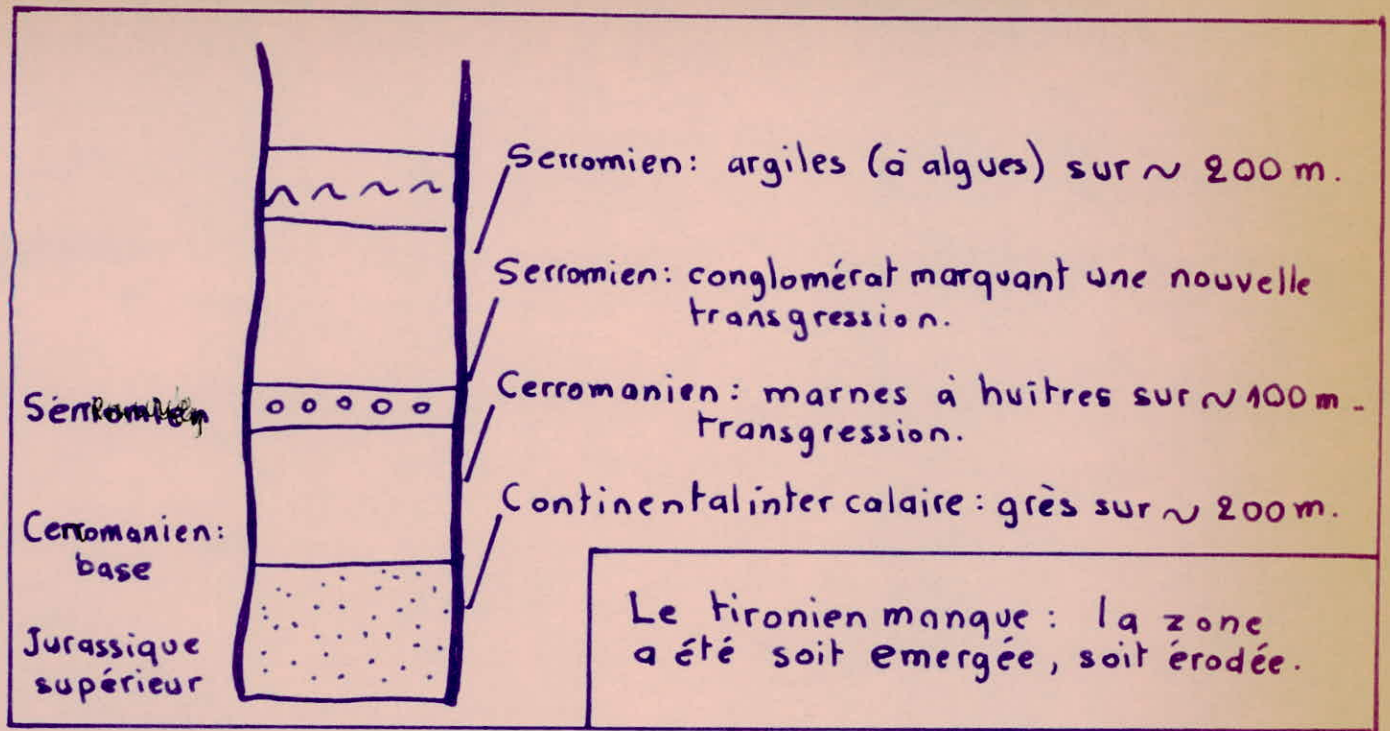 Serromien: argiles (à algues) sur ~ 200 m.
Serromien: conglomérat marquant une nouvelle
transgression.
Cerromanien: marnes à huîtres sur ~ 100 m.
transgression.
Continental inter calaire: grès sur ~ 200 m.
Cerromanien:
base
Jurassique
supérieur
Le tironien manque: la zone
a été soit emergée, soit érodée.